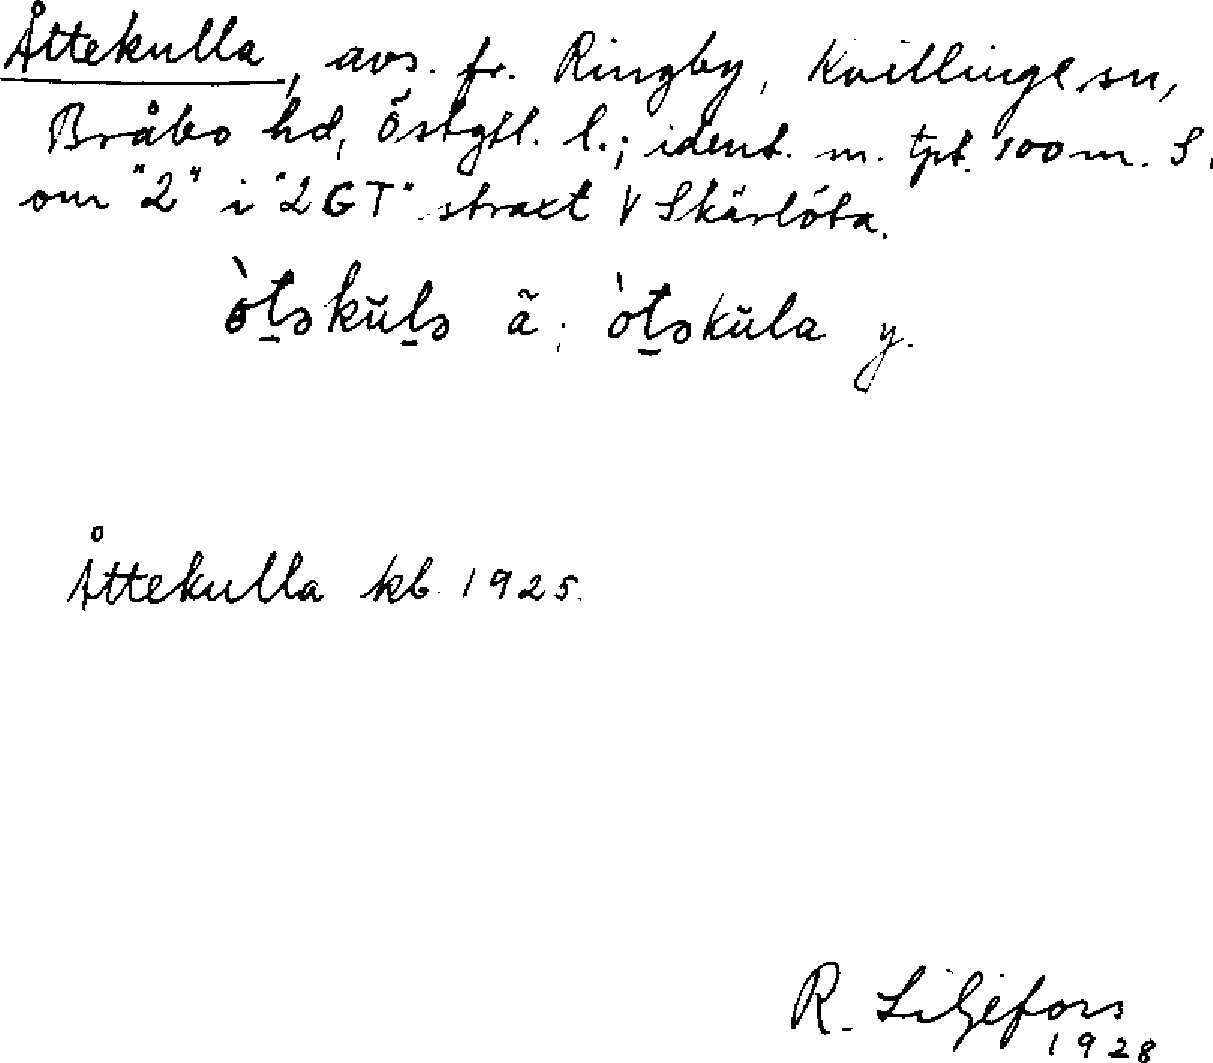 Åttekulla, avs. fr. Ringby, Kvillinge sn,
Bråbo hd, Östgtl. l.; ident. m. tpt. 100 m. S.
om "2" i "2GT" strax t V Skärlöta.
òt̠əkŭl̠ə ã; òt̠əkŭla y.
Åttekulla kb. 1925.
R. Liljefors
1928